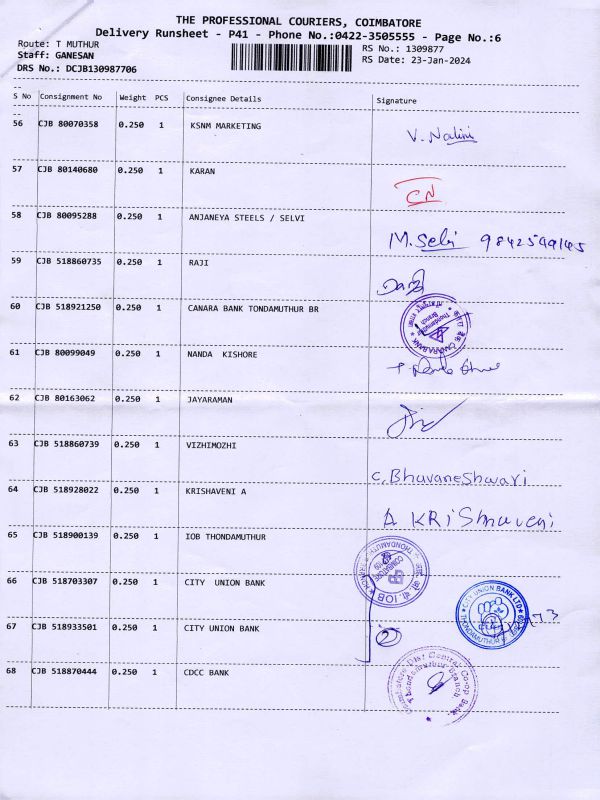 THE PROFESSIONAL COURIERS, COIMBATORE
Delivery Runsheet - P41 - Phone No.:0422-3505555 - Page No.:6
Route: T MUTHUR RS No.: 1309877
Staff: GANESAN RS Date: 23-Jan-2024
DRS No.: DCJB130987706
S No Consignment No Weight PCS Consignee Details Signature
56 CJB 80070358 0.250 1 KSNM MARKETING V. Nalini
57 CJB 80140680 0.250 1 KARAN CN
58 CJB 80095288 0.250 1 ANJANEYA STEELS / SELVI M. Selvi 9842549145
59 CJB 518860735 0.250 1 RAJI
60 CJB 518921250 0.250 1 CANARA BANK TONDAMUTHUR BR
61 CJB 80099049 0.250 1 NANDA KISHORE
62 CJB 80163062 0.250 1 JAYARAMAN
63 CJB 518860739 0.250 1 VIZHIMOZHI C. Bhuvaneshwari
64 CJB 518928022 0.250 1 KRISHAVENI A A KRiSHnaveni
65 CJB 518900139 0.250 1 IOB THONDAMUTHUR
66 CJB 518703307 0.250 1 CITY UNION BANK CITY UNION BANK LTD
67 CJB 518933501 0.250 1 CITY UNION BANK 2
68 CJB 518870444 0.250 1 CDCC BANK